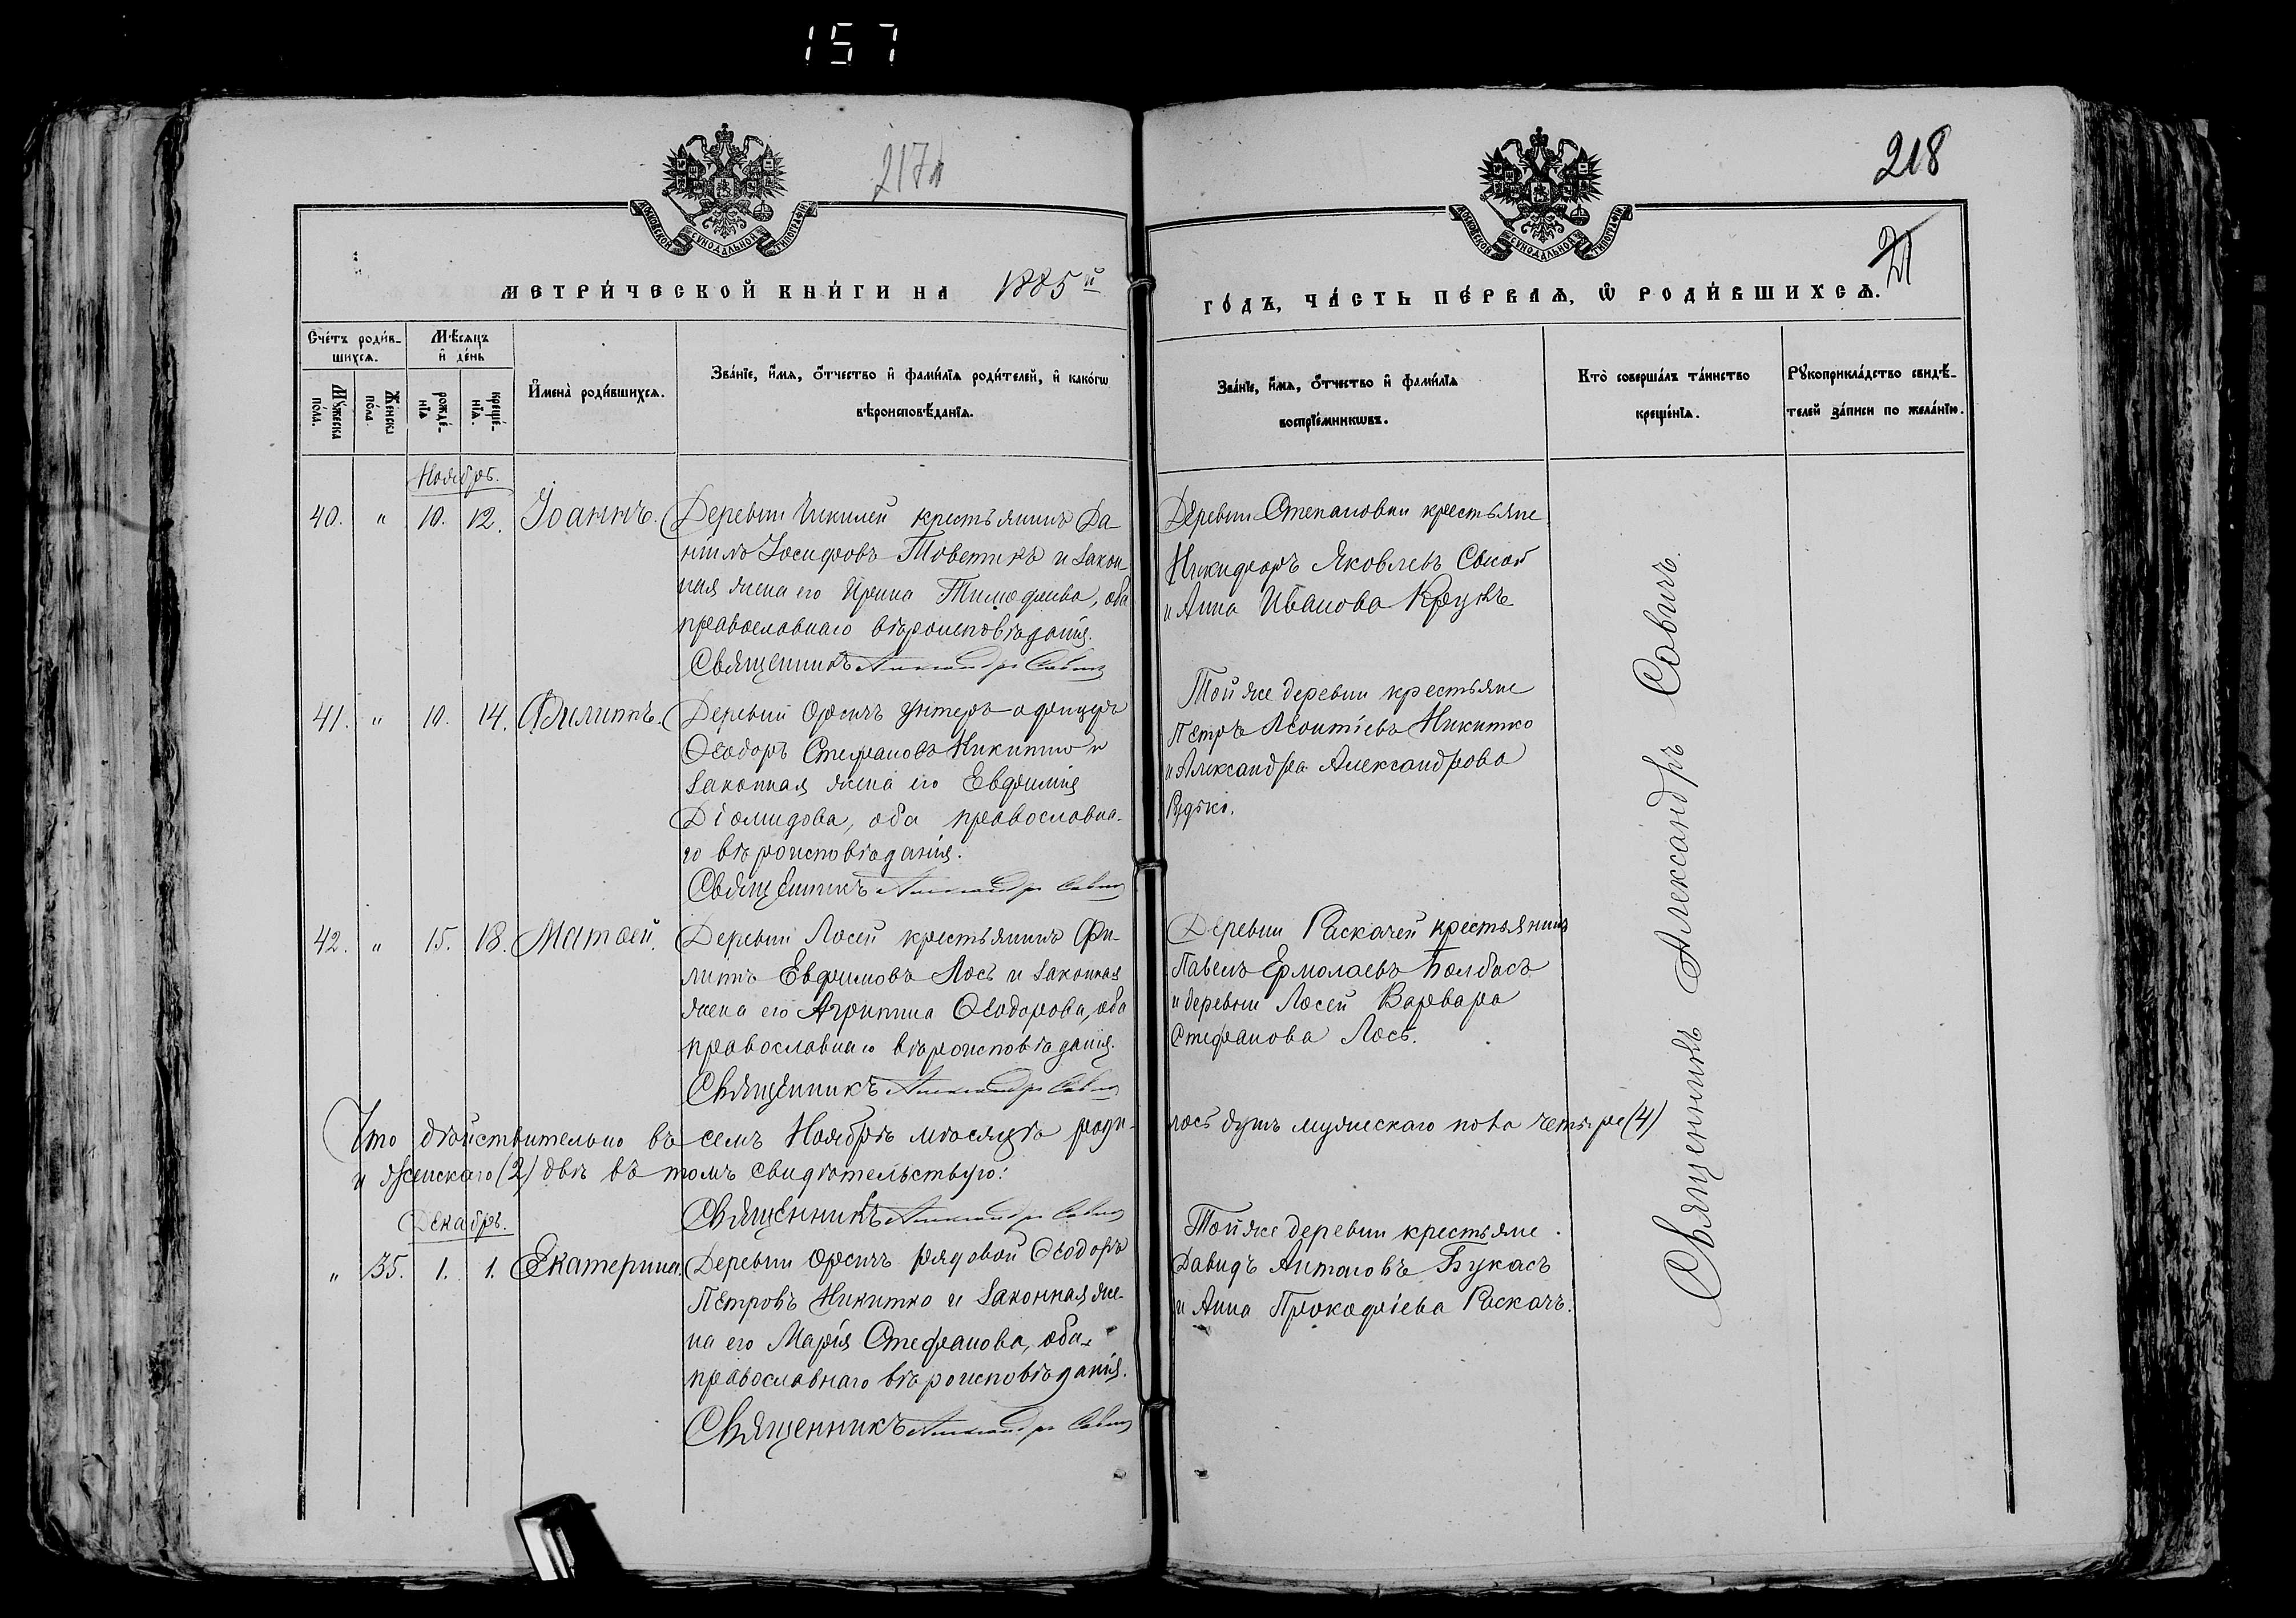 157
217
218
МОСКОВСКОЙ СѴНОДАЛЬНОЙ ТИПОГРАФІИ
МОСКОВСКОЙ СѴНОДАЛЬНОЙ ТИПОГРАФІИ
21
МЕТРИ́ЧЕСКОЙ КНИ́ГИ НА 1885й
ГО́ДЪ, ЧА́СТЬ ПЕ́РВАѦ, Ѡ РОДИ́ВШИХСѦ.
Сче́тъ роди́в-
шихсѧ.
Мѣ́сѧцъ
и҆ де́нь
Мꙋ́жеска
по́ла.
Же́нска
по́ла.
рожде́-
нїѧ
креще́-
нїѧ.
И҆мена̀ роди́вшихсѧ.
Зва́нїе, и҆́мѧ, ѻ҆́тчество и҆ фами́лїѧ роди́телей, и҆ како́гѡ
вѣроисповѣ́данїѧ.
Зва́нїе, и҆́мѧ, ѻ҆́тчество и҆ фами́лїѧ
воспрїе́мникѡвъ.
Кто̀ соверша́лъ та́инство
креще́нїѧ.
Рꙋкоприкла́дство свидѣ́-
телей за́писи по жела́нїю.
Ноябрь.
40. " 10. 12. Іоаннъ. Деревни крестьянинъ Да-
ніилъ Іосифовъ Товстикъ и закон
ная жена его Ирина Тимофеева, оба
православнаго вѣроисповѣданія.
Священникъ Александръ Савичъ
Деревни Степановки крестьяне
Никифоръ Яковлевъ
и Анна Иванова Крукъ
41. " 10. 14. Филиппъ. Деревни Орсичъ унтеръ-офицеръ
Ѳеодоръ Стефановъ Никитко и
законная жена его Евфимія
Діомидова, оба православна-
го вѣроисповѣданія.
Священникъ Александръ Савичъ
Той же деревни крестьяне
Петръ Леонтіевъ Никитко
и Александра Александрова
Рудько.
42. " 15. 18. Матѳей. Деревни Лосей крестьянинъ Фи-
липпъ Евфимовъ Лось и законная
жена его Агрипина Ѳеодорова, оба
православнаго вѣроисповѣданія.
Священникъ Александръ Савичъ
Деревни Раскачей крестьянинъ
Павелъ Ермолаевъ Болбасъ
и деревни Лосей Варвара
Стефанова Лось.
Что дѣйствительно въ семъ Ноябрѣ мѣсяцѣ роди-
лось душъ мужескаго пола четыре (4)
и женскаго (2) двѣ въ томъ свидѣтельствую:
Священникъ Александръ Савичъ
Декабрь.
" 35. 1. 1. Екатерина. Деревни Орсичъ рядовой Ѳеодоръ
Петровъ Никитко и законная же-
на его Марія Стефанова, оба
православнаго вѣроисповѣданія.
Священникъ Александръ Савичъ
Той же деревни крестьяне
Давидъ Антоновъ Букасъ
и Анна Прокофіева Раскачъ.
Священникъ Александръ Савичъ.